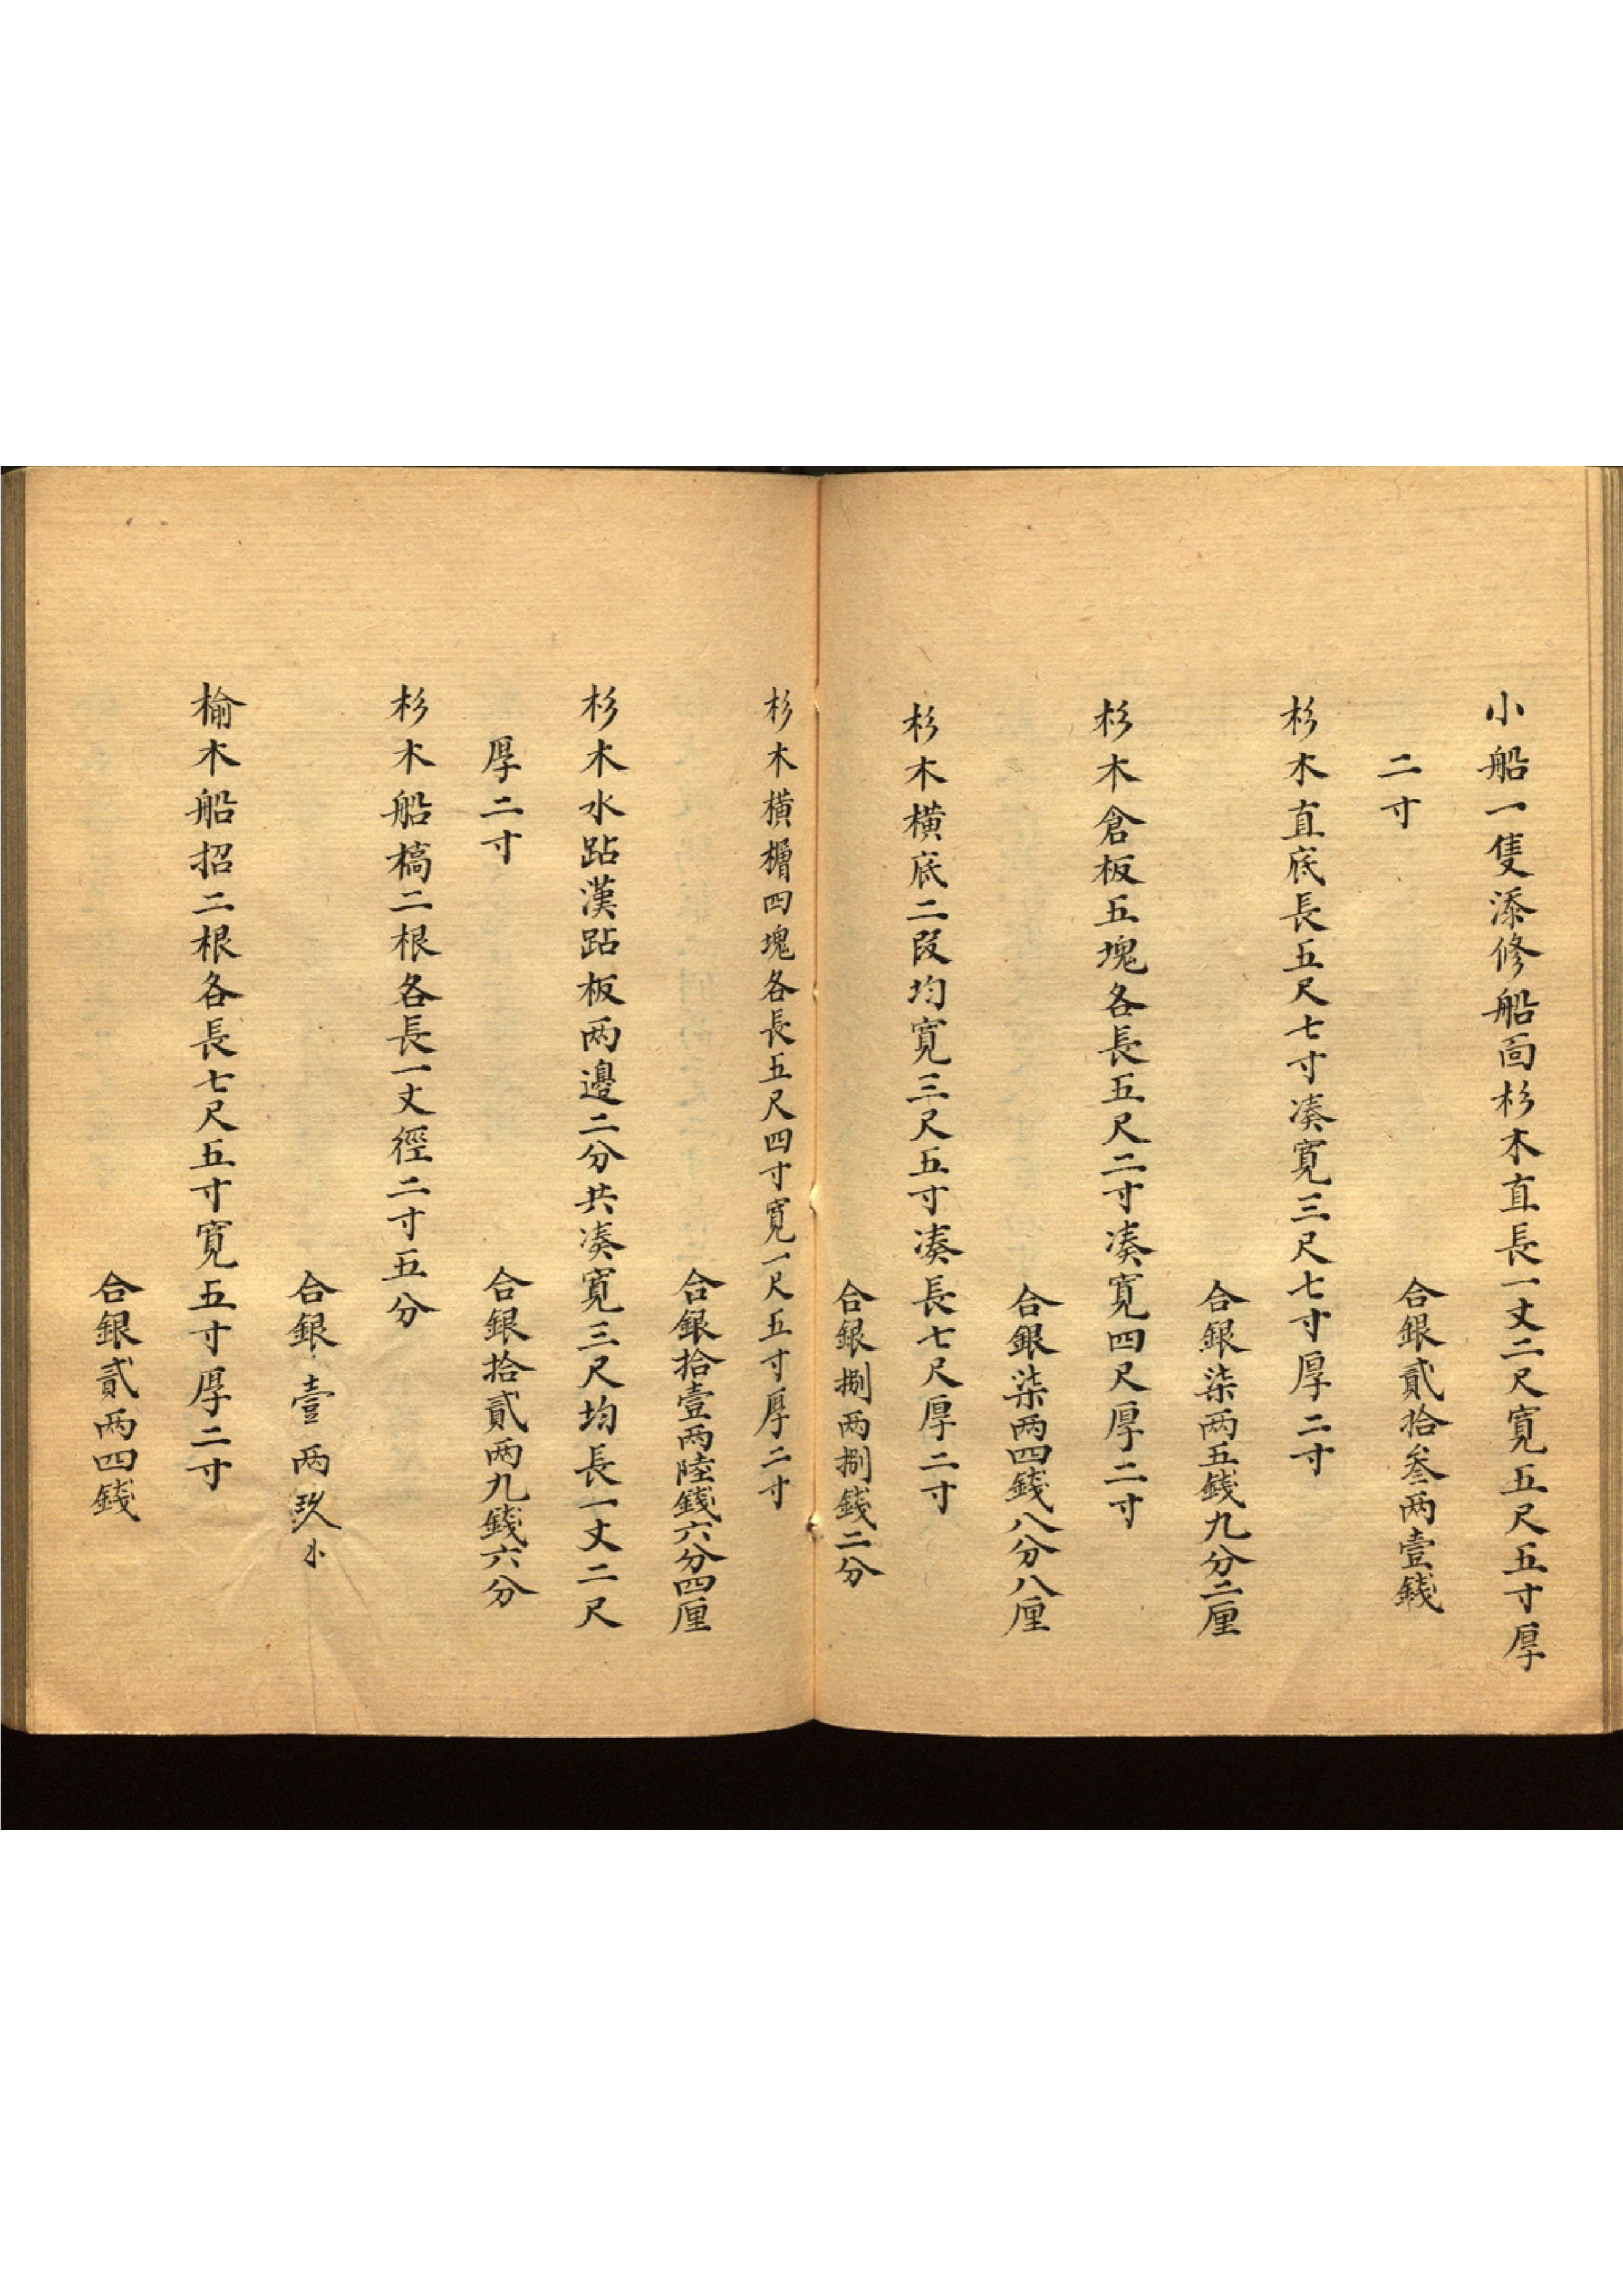 小船一隻添修船面杉木直長一丈二尺寬五尺五寸厚
二寸
合銀貳拾叁两壹錢
杉木直底長五尺七寸凑寬三尺七寸厚二寸
合銀柒两五錢九分二厘
杉木倉板五塊各長五尺二寸凑寬四尺厚二寸
合銀柒两四錢八分八厘
杉木橫底二段均寬三尺五寸凑長七尺厚二寸
合銀捌两捌錢二分
杉木橫櫓四塊各長五尺四寸寬一尺五寸厚二寸
合銀拾壹两陸錢六分四厘
杉木水跕漢跕板两邊二分共凑寬三尺均長一丈二尺
厚二寸
合銀拾貳两九錢六分
杉木船槁二根各長一丈徑二寸五分
合銀壹两玖
榆木船招二根各長七尺五寸寬五寸厚二寸
合銀貳两四錢